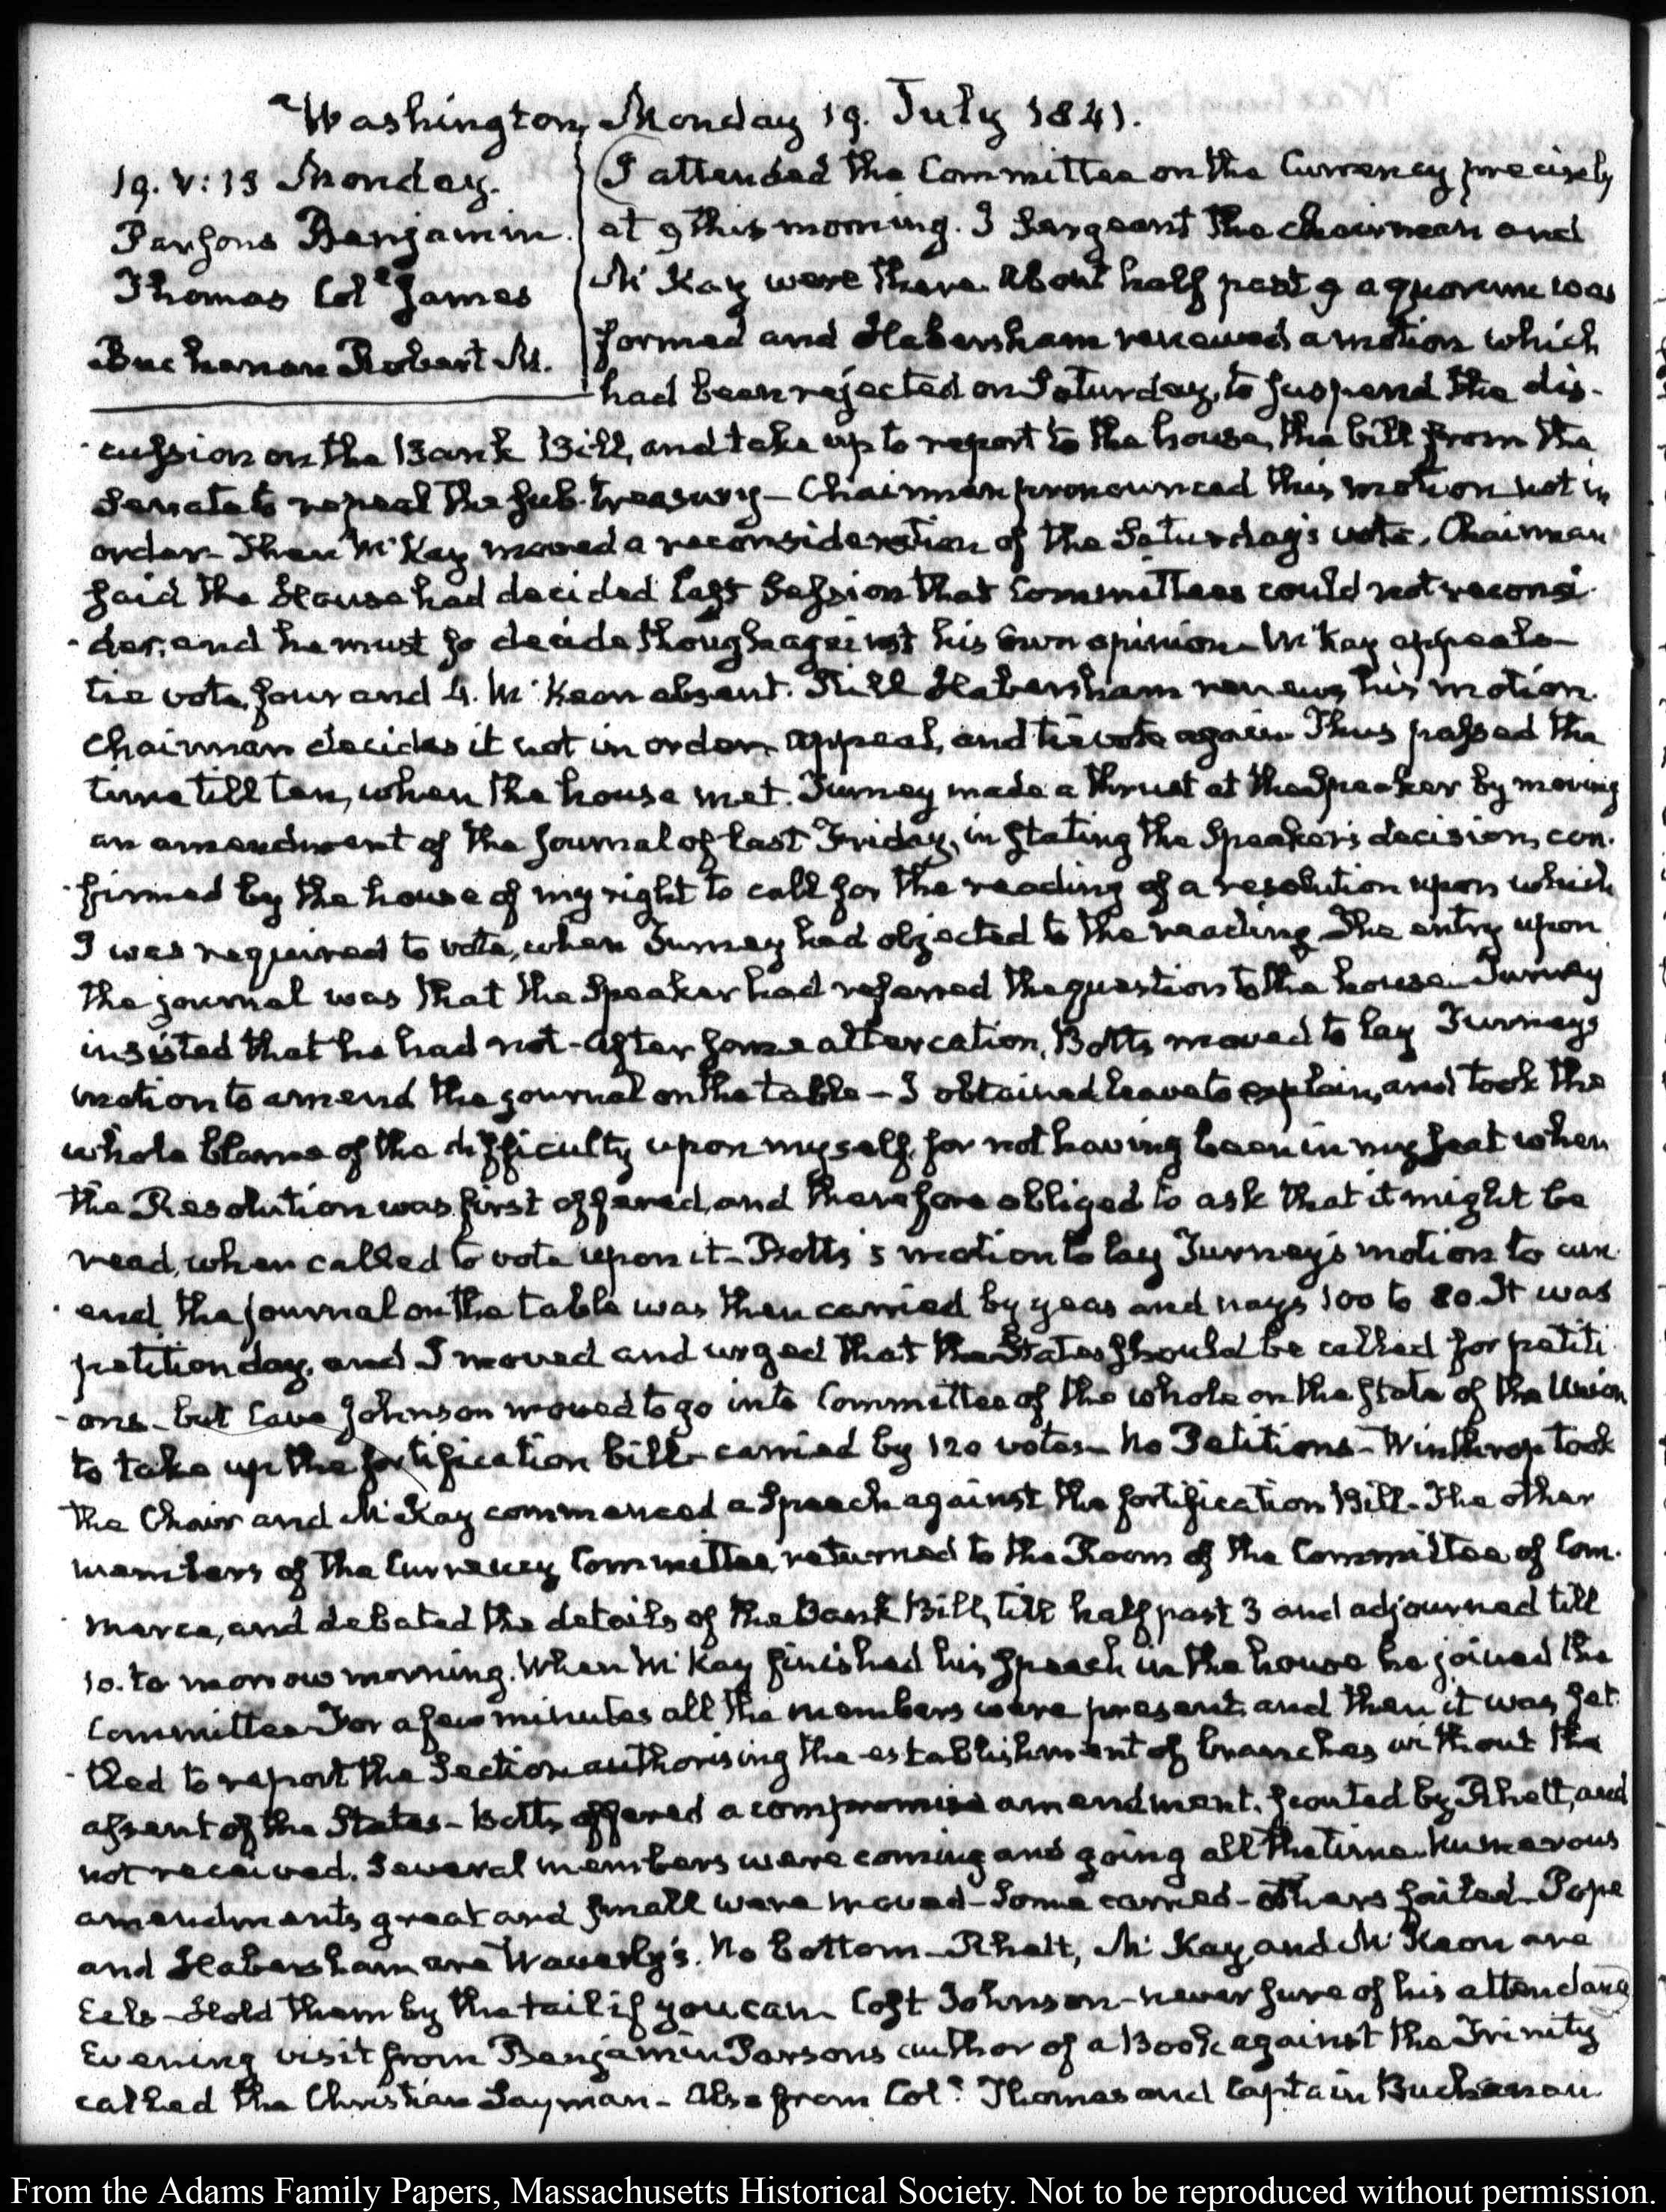 Washington, Monday 19. July 1841.
19. V: 15 Monday.
Parsons Benjamin.
Thomas Col.l James
Buchanan Robert M.
I attended the Committee on the Currency precisely
at 9 this morning. I Sergeant the chairman and
Mc Kay were there. About half past 9 a quorum was
formed and Habersham renewed a motion which
had been rejected on Saturday, to suspend the dis-
-cussion on the Bank Bill, and take up to report to the house, the bill from the
Senate to repeal the sub-treasury – Chairman pronounced this motion not in
order – Then Mc Kay moved a reconsideration of the Saturday's vote. Chairman
said the House had decided last Session that Committees could not reconsi-
-der, and he must so decide though against his own opinion – Mc Kay appeals –
tie vote, four and 4. Mc Keon absent. Still Habersham renews his motion.
Chairman decides it not in order – appeal, and tie vote again. Thus passed the
time till ten, when the house met. Turney made a thrust at the Speaker by moving
an amendment of the Journal of last Friday, in stating the Speaker's decision, con-
-firmed by the house of my right to call for the reading of a resolution upon which
I was required to vote, when Turney had objected to the reading. The entry upon
the journal was that the Speaker had referred the question to the house – Turney
insisted that he had not – After some altercation, Botts moved to lay Turneys
motion to amend the journal on the table – I obtained leave to explain, and took the
whole blame of the difficulty upon myself, for not having been in my seat when
the Resolution was first offered, and therefore obliged to ask that it might be
read, when called to vote upon it – Botts's motion to lay Turney's motion to am-
-end the journal on the table was then carried by yeas and nays 100 to 80. It was
petition day, and I moved and urged that the States should be called for petiti-
-ons – but Cave Johnson moved to go into Committee of the whole on the State of the Union
to take up the fortification bill – carried by 120 votes – No Petitions – Winthrop took
the Chair and Mc Kay commenced a Speech against the fortification Bill – The other
members of the Currency Committee, returned to the Room of the Committee of Com-
-merce, and debated the details of the Bank Bill, till half past 3 and adjourned till
10. to morrow morning. When Mc Kay finished his speech in the house he joined the
Committee. For a few minutes all the members were present, and then it was set-
-tled to report the Section authorising the establishment of branches without the
assent of the States – Botts offered a compromise amendment, scouted by Rhett, and
not received. Several members were coming and going all the time. Numerous
amendments great and small were moved – Some carried – others failed – Pope
and Habersham are Waverly's. No bottom – Rhett, Mc Kay and Mc Keon are
Eels – Hold them by the tail if you can – Cost Johnson – never sure of his attendance
Evening visit from Benjamin Parsons author of a Book against the Trinity
called the Christian Layman – Also from Col.l Thomas and Captain Buchanan.
From the Adams Family Papers, Massachusetts Historical Society. Not to be reproduced without permission.